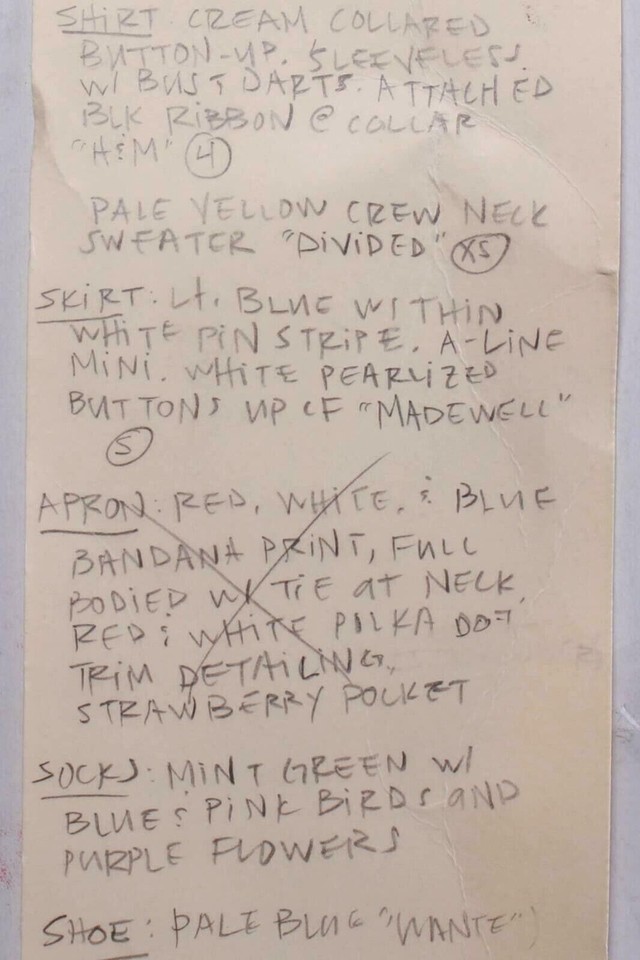 SHIRT CREAM COLLARED
BUTTON-UP. SLEEVELESS
W/ BUST DARTS. ATTACHED
BLK RIBBON @ COLLAR
"H&M" 4
PALE YELLOW CREW NECK
SWEATER "DIVIDED" XS
SKIRT: Lt. BLUE WITHIN
WHITE PIN STRIPE. A-LINE
MINI. WHITE PEARLIZED
BUTTONS UP CF "MADEWELL"
S
APRON: RED, WHITE, & BLUE
BANDANA PRINT, FULL
BODIED W/ TIE AT NECK,
RED & WHITE POLKA DOT
TRIM DETAILING,
STRAWBERRY POCKET
SOCKS: MINT GREEN W/
BLUE & PINK BIRDS AND
PURPLE FLOWERS
SHOE: PALE BLUE "WANTE"